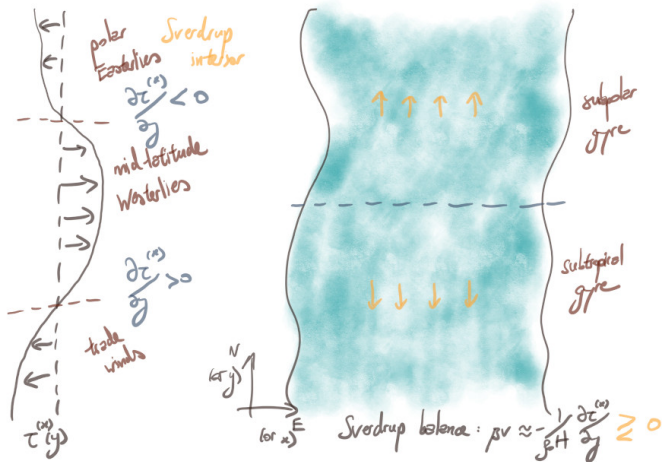 polar
Easterlies
Sverdrup
interior
∂τ⁽ˣ⁾/∂y < 0
mid-latitude
Westerlies
∂τ⁽ˣ⁾/∂y > 0
trade
winds
τ⁽ˣ⁾(y)
subpolar
gyre
subtropical
gyre
N
(or y)
E
(or x)
Sverdrup balance : βv ≈ - 1/ρ₀H ∂τ⁽ˣ⁾/∂y ≷ 0